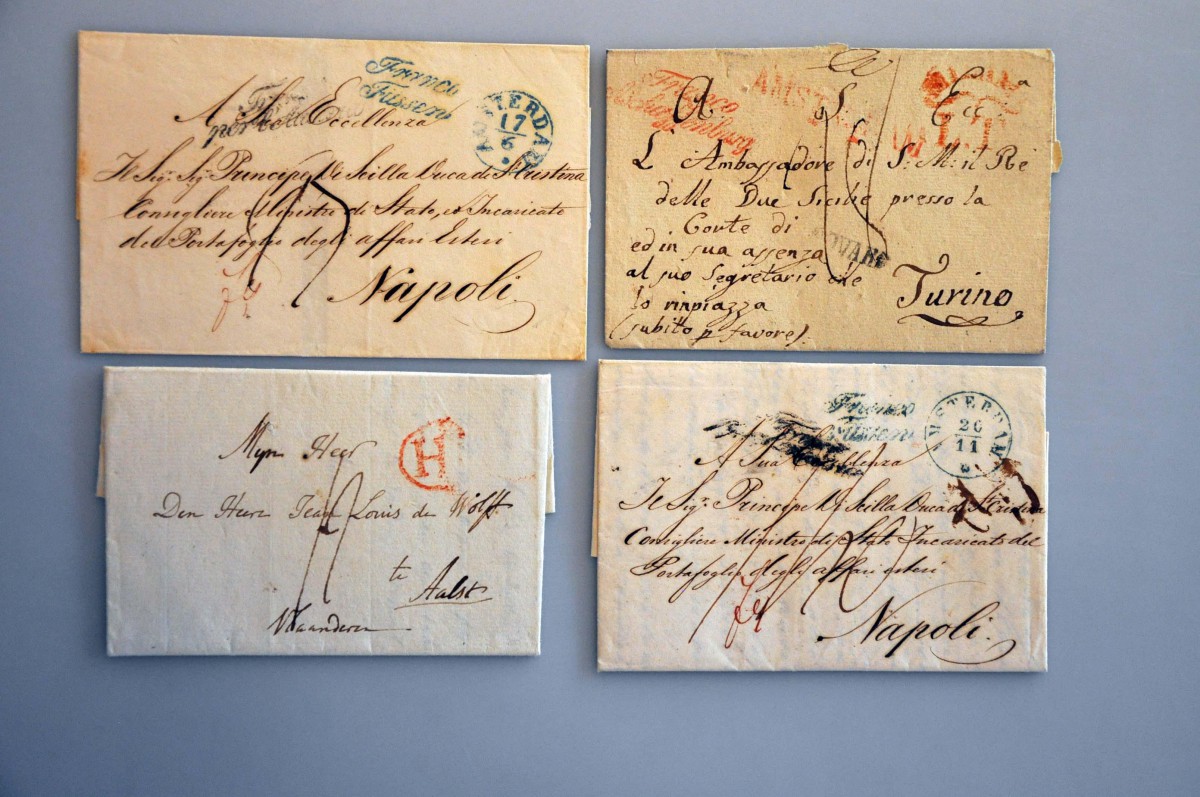 Franco
Fussen
AMSTERDAM
17
6
A Sua Eccellenza
Il Sig: Sig: Principe di Scilla Duca di S. Cristina
Consigliere Ministro di Stato, ed Incaricato
del Portafoglio degli affari Esteri
Napoli
Franco
AMST
A S. E.
L'Ambassadore di S: M: il Re
delle Due Sicilie presso la
Corte di
ed in sua assenza
al suo Segretario che
lo rinpiazza
(subitto p favore).
Turino
H
Myn Heer
Den Heere Jean Louis de Wolff
te
Aalst
Vlaanderen
Franco
Fussen
AMSTERDAM
26
11
A Sua Eccellenza
Il Sig: Principe di Scilla Duca di S. Cristina
Consigliere Ministro di Stato Incaricato del
Portafoglio degli affari esteri
Napoli.